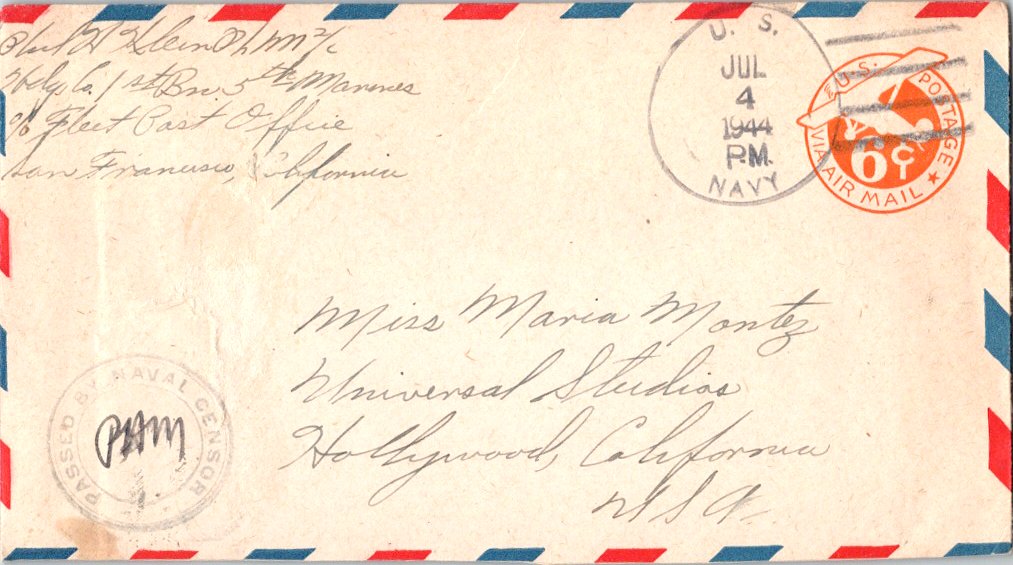 H Klein PhM 2/c
Hdq. Co. 1st Bn. 5th Marines
c/o Fleet Post Office
San Francisco, California
U. S.
JUL
4
1944
P.M.
NAVY
U.S. POSTAGE
6¢
VIA AIR MAIL
Miss Maria Montez
Universal Studios
Hollywood, California
USA
PASSED BY NAVAL CENSOR